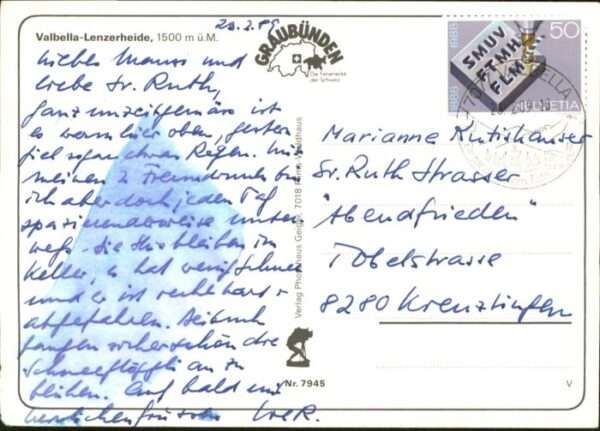 20.2.89
Valbella-Lenzerheide, 1500 m ü.M.
Liebes Manns und
liebe Sr. Ruth,
ganz unzeitgemäss ist
es warm hier oben, gestern
fiel sogar etwas Regen. Mit
meinen 2 Freundinnen bin
ich aber doch jeden Tag
spaziererweise unter-
wegs. Die Ski bleiben im
Keller, es hat wenig Schnee
und er ist recht hart +
abgefahren. Beim
fangen schon die
Schneeglöggli an zu
blühen. Auf bald mit
herzlichen Grüssen
GRAUBÜNDEN
Die Ferienecke
der Schweiz
Verlag Photohaus Geiger, 7018 Flims-Waldhaus
Nr. 7945
1888 1988
SMUV
FTMH
FLMO
50
HELVETIA
VALBELLA
Marianne Rutishauser
Sr. Ruth Strasser
"Abendfrieden"
Tobelstrasse
8280 Kreuzlingen
V